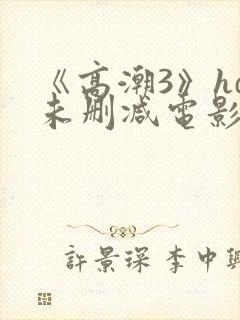 《高潮3》hd
未删减电影
許景琛 李中興